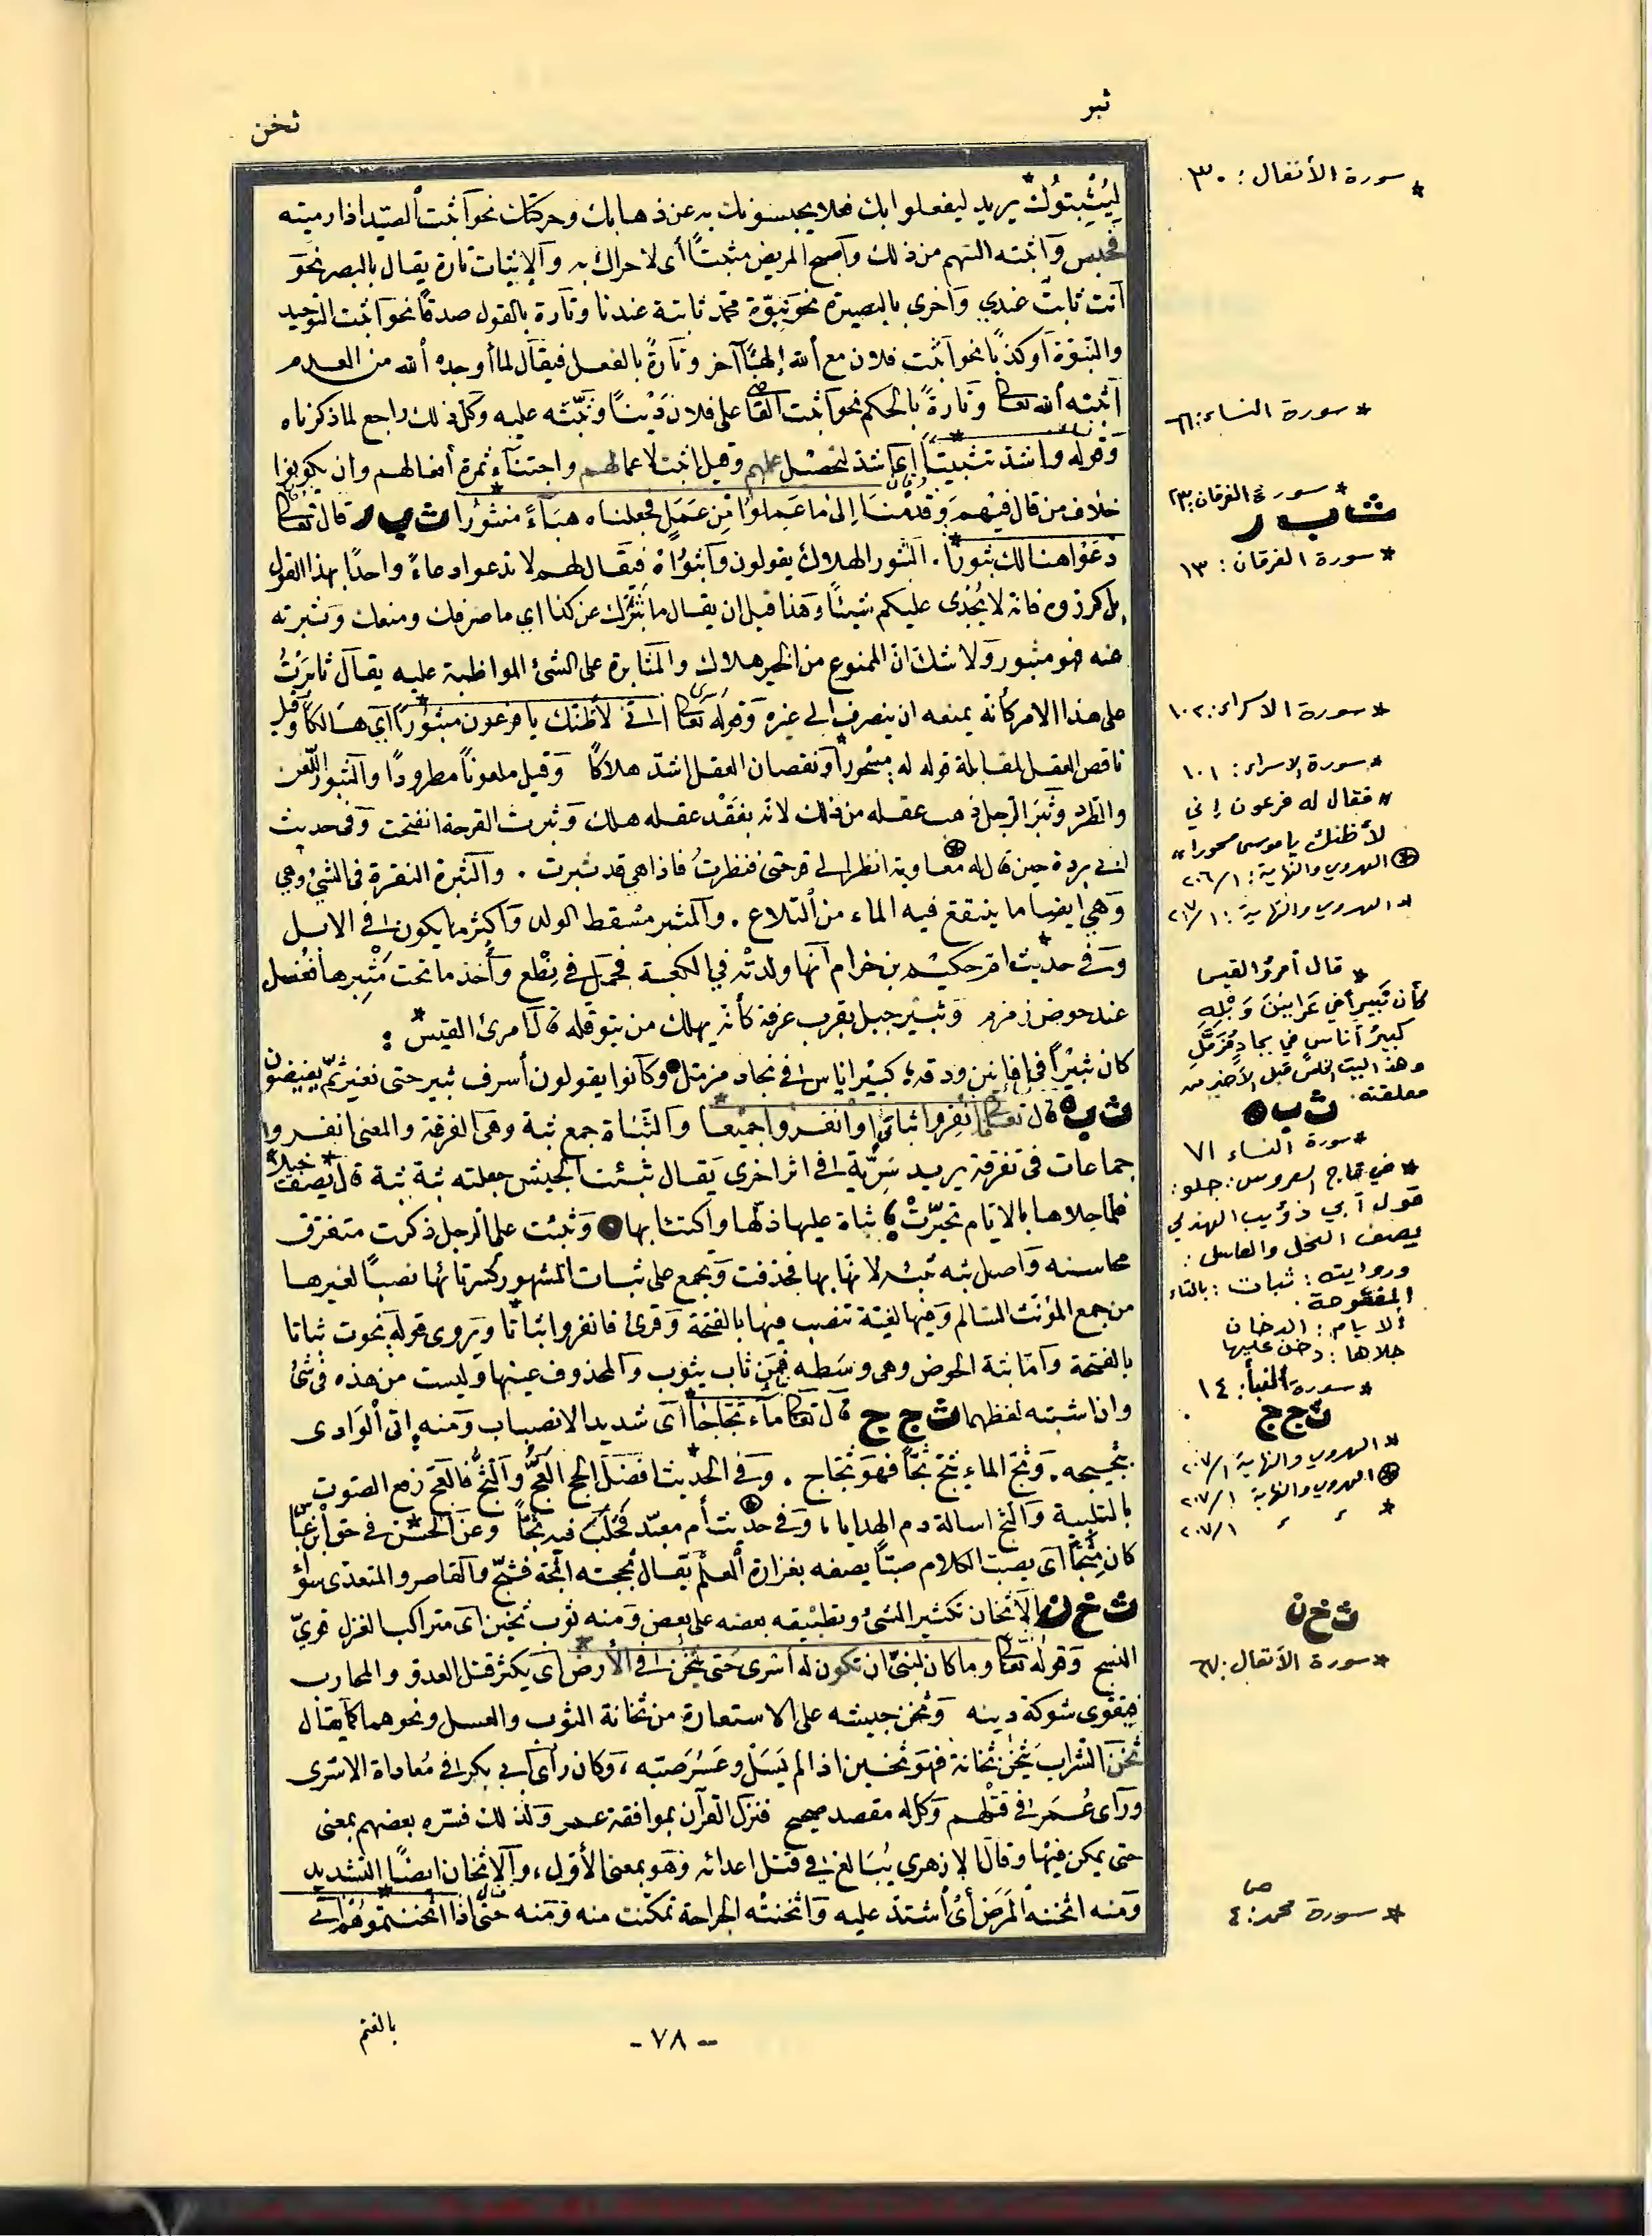 ثبر
ثخن
ليُثْبِتوُك يريد ليفعلوا بك فعلا يحبسونك به عن ذهابك وحركتك نحو أثبت الصّيد إذا رميته
فحبس وأثبته السّهم من ذلك وأصبح المريض مثبتًا أى لا حراك به والإثبات تارة يقال بالبصر نحو
أنت ثابتٌ عندي وأخرى بالبصيرة نحو نبوّة محمّد ثابتة عندنا وتارة بالقول صدقًا نحو أثبت التوحيد
والنّبوّة أو كذبًا نحو أثبت فلان مع الله إلهًا آخر وتارةً بالفعل فيقال لما أوجده الله من العدم
أثبته الله تعالى وتارةً بالحكم نحو أثبت القاضى على فلان دَيْنًا وثبّته عليه وكل ذلك راجع لما ذكرناه
وقوله واشدّ تثبيتًا أى أشدّ لتحصيل علمهم وقيل أثبت لأعمالهم واجتناء ثمرة أفعالهم وان يكونوا
خلاف من قال فيهم وقدمْنا إلى ما عملوا من عمَلٍ فجعلناه هباءً منثورًا ث ب ر قال تعالى
دعَوْا هنالك ثبورًا. الثبور الهلاك يقولون واثبوراه فيقال لهم لا تدعوا دعاءً واحدًا بهذا القول
بل كرّروه فانه لا يُجْدى عليكم شيئًا وهذا قبل ان يقال ما ثَبَرَك عن كذا اي ما صرفك ومنعك وثبرته
عنه فهو مثبور ولا شك انّ الممنوع من الخير هلاك والمثابرة على الشئ المواظبة عليه يقال ثابَرْتُ
على هذا الامر كأنه يمنعه ان ينصرف الى غيره وقوله تعالى انى لأظنّك يا فرعون مثبورًا اى هالكًا وقيل
ناقص العقل لمقابلة قوله له مسْحورًا ونقصان العقل اشدّ هلاكًا وقيل ملعونًا مطرودًا والثبور اللّعن
والطّرد وثبَر الرّجل ذهب عقله من ذلك لانّه بفَقْد عقله هلك وثبرت القرحة انفتحت وفى حديث
ابى بردة حين قال له معاوية انظر الى قرحتى فنظرتُ فاذا هى قد ثبرت . والثبرة النقرة فى الشئ وهي
وهي ايضا ما ينتقع فيه الماء من التلاع . والمثبر مسقط الولد وأكثر ما يكون فى الابل
وفى حديث امّ حكيم بن حزام انّها ولدتْه في الكعبة فحمل فى نِطْع وأُخذ ما تحت مَثْبِرها فغُسل
عند حوض زمزم وثبير جبل بقرب عرفة كأنّه يهلك من يتوقله قال امرئ القيس :
كان ثبيْرًا فى افانين ودقه كبيْر اناس فى بجاد مزمّل وكانوا يقولون أشرف ثبير حتى نغير ثمّ يفيضون
ث ب ه قال تعالى انفِروا ثباتٍ او انفروا جميعا والثّباة جمع ثبة وهى الفرقة والمعنى انفروا
جماعات فى تفرقة يريد سَرِيّة فى اثر اخرى يقال ثبّئت الجيش جعلته ثبة ثبة قال يصف نحلا
فلما جلاها بالايّام تحيّزتْ ثباة عليها ذلّها واكتئابها وثبّئت على الرجل ذكرت متفرّق
محاسنه واصل ثبه ثبئه لانها بها فحذفت ويجمع على ثبات المشهور كسر تائها نصبًا لغيرها
من جمع المؤنث السّالم وفيها لغيّة تنصب فيها بالفتحة وقرئ فانفروا ثباتًا ويروى قوله تحوت ثباتا
بالفتحة وامّا ثبة الحوض وهى وسَطه فمِن ثاب يثوب والمحذوف عينها وليست من هذه فى شئ
وان اشتبه لفظهما ث ج ج قال تعالى ماء ثجّاجًا أى شديد الانصباب ومنه اتى الوادى
بثجيجه. وثجّ الماء يثجّ ثجًّا فهو ثجّاج . وفى الحديث افضل الحج العَجُّ والثّجُّ فالعجّ رفع الصّوت
بالتلبية والثجّ اسالة دم الهدايا، وفى حديث أم معبد فحلَب فيه ثجًّا وعن الحسن فى حق ابن عبّاس
كان مِثَجًّا اى يصبّ الكلام صبًّا يصفه بغزارة العلم يقال ثججته اثجّه فثجّ والقاصر والمتعدّى سواء
ث خ ن الاثخان تكثير الشئ وتطبيقه بعضه على بعض ومنه ثوب ثخين اى متراكب الغزل قويّ
النسج وقوله تعالى وما كان لنبيّ ان تكون له أسْرى حتى يثخن فى الأرض اى يكثر قتل العدوّ والمحارب
فيقوى شوكة دينه وثخن جيشه على الاستعارة من ثخانة الثوب والعسل ونحوهما كما يقال
ثخن الشّرابَ يثخن ثخانة فهو ثخين اذا لم يَسَل وعَسُرَ صبّه ، وكان رأى ابى بكر فى مُفاداة الاسْرى
ورأى عُمَر فى قتْلهم وكل له مقصد صحيح فنزل القرآن بموافقة عمر ولذلك فسّره بعضهم بمعنى
حتى يمكن فيها وقال الازهري يُبَالغ فى قتل اعدائه وهو بمعنى الأول ، والاثخان ايضًا التشديد
ومنه اثخنه المرَض أىْ أشتدّ عليه واثخنتْه الجراحة تمكّنت منه ومنه حتّى اذا اثخنتموهُمْ اى
بالغتم
- ٧٨ -
* سورة الأنفال : ٣٠
* سورة النساء: ٦٦
* سورة الفرقان: ٢٣
ث ب ر
* سورة الفرقان : ١٣
* سورة الاسراء: ١٠٢
* سورة الاسراء: ١٠١
" فقال له فرعون إني
لأظنك يا موسى مسحورا "
⊛ الهروي والنهاية: ١/٢٠٦
* الهروي والنهاية : ١/٢٠٧
* قال أمرؤ القيس
كأن ثبيرا في عَرانينَ وَبْلِهِ
كبيرُ أناسٍ في بجادٍ مُزَمَّلِ
وهذا البيت الخامس قبل الأخير من
معلقته.
ث ب ه
* سورة النساء ٧١
* في تاج العروس: جلو:
قول أبي ذؤيب الهذلي
يصف النحل والعاسل :
وروايته : ثبات : بالتاء
المفتوحة .
الايام : الدخان
جلاها : دخن عليها
* سورة النبأ: ١٤
ث ج ج
* الهروي والنهاية ١/٢٠٧
⊛ الهروي والنهاية ١/٢٠٧
* ء ء ١/٢٠٧
ث خ ن
* سورة الأنفال: ٦٧
* سورة محمد ص: ٤